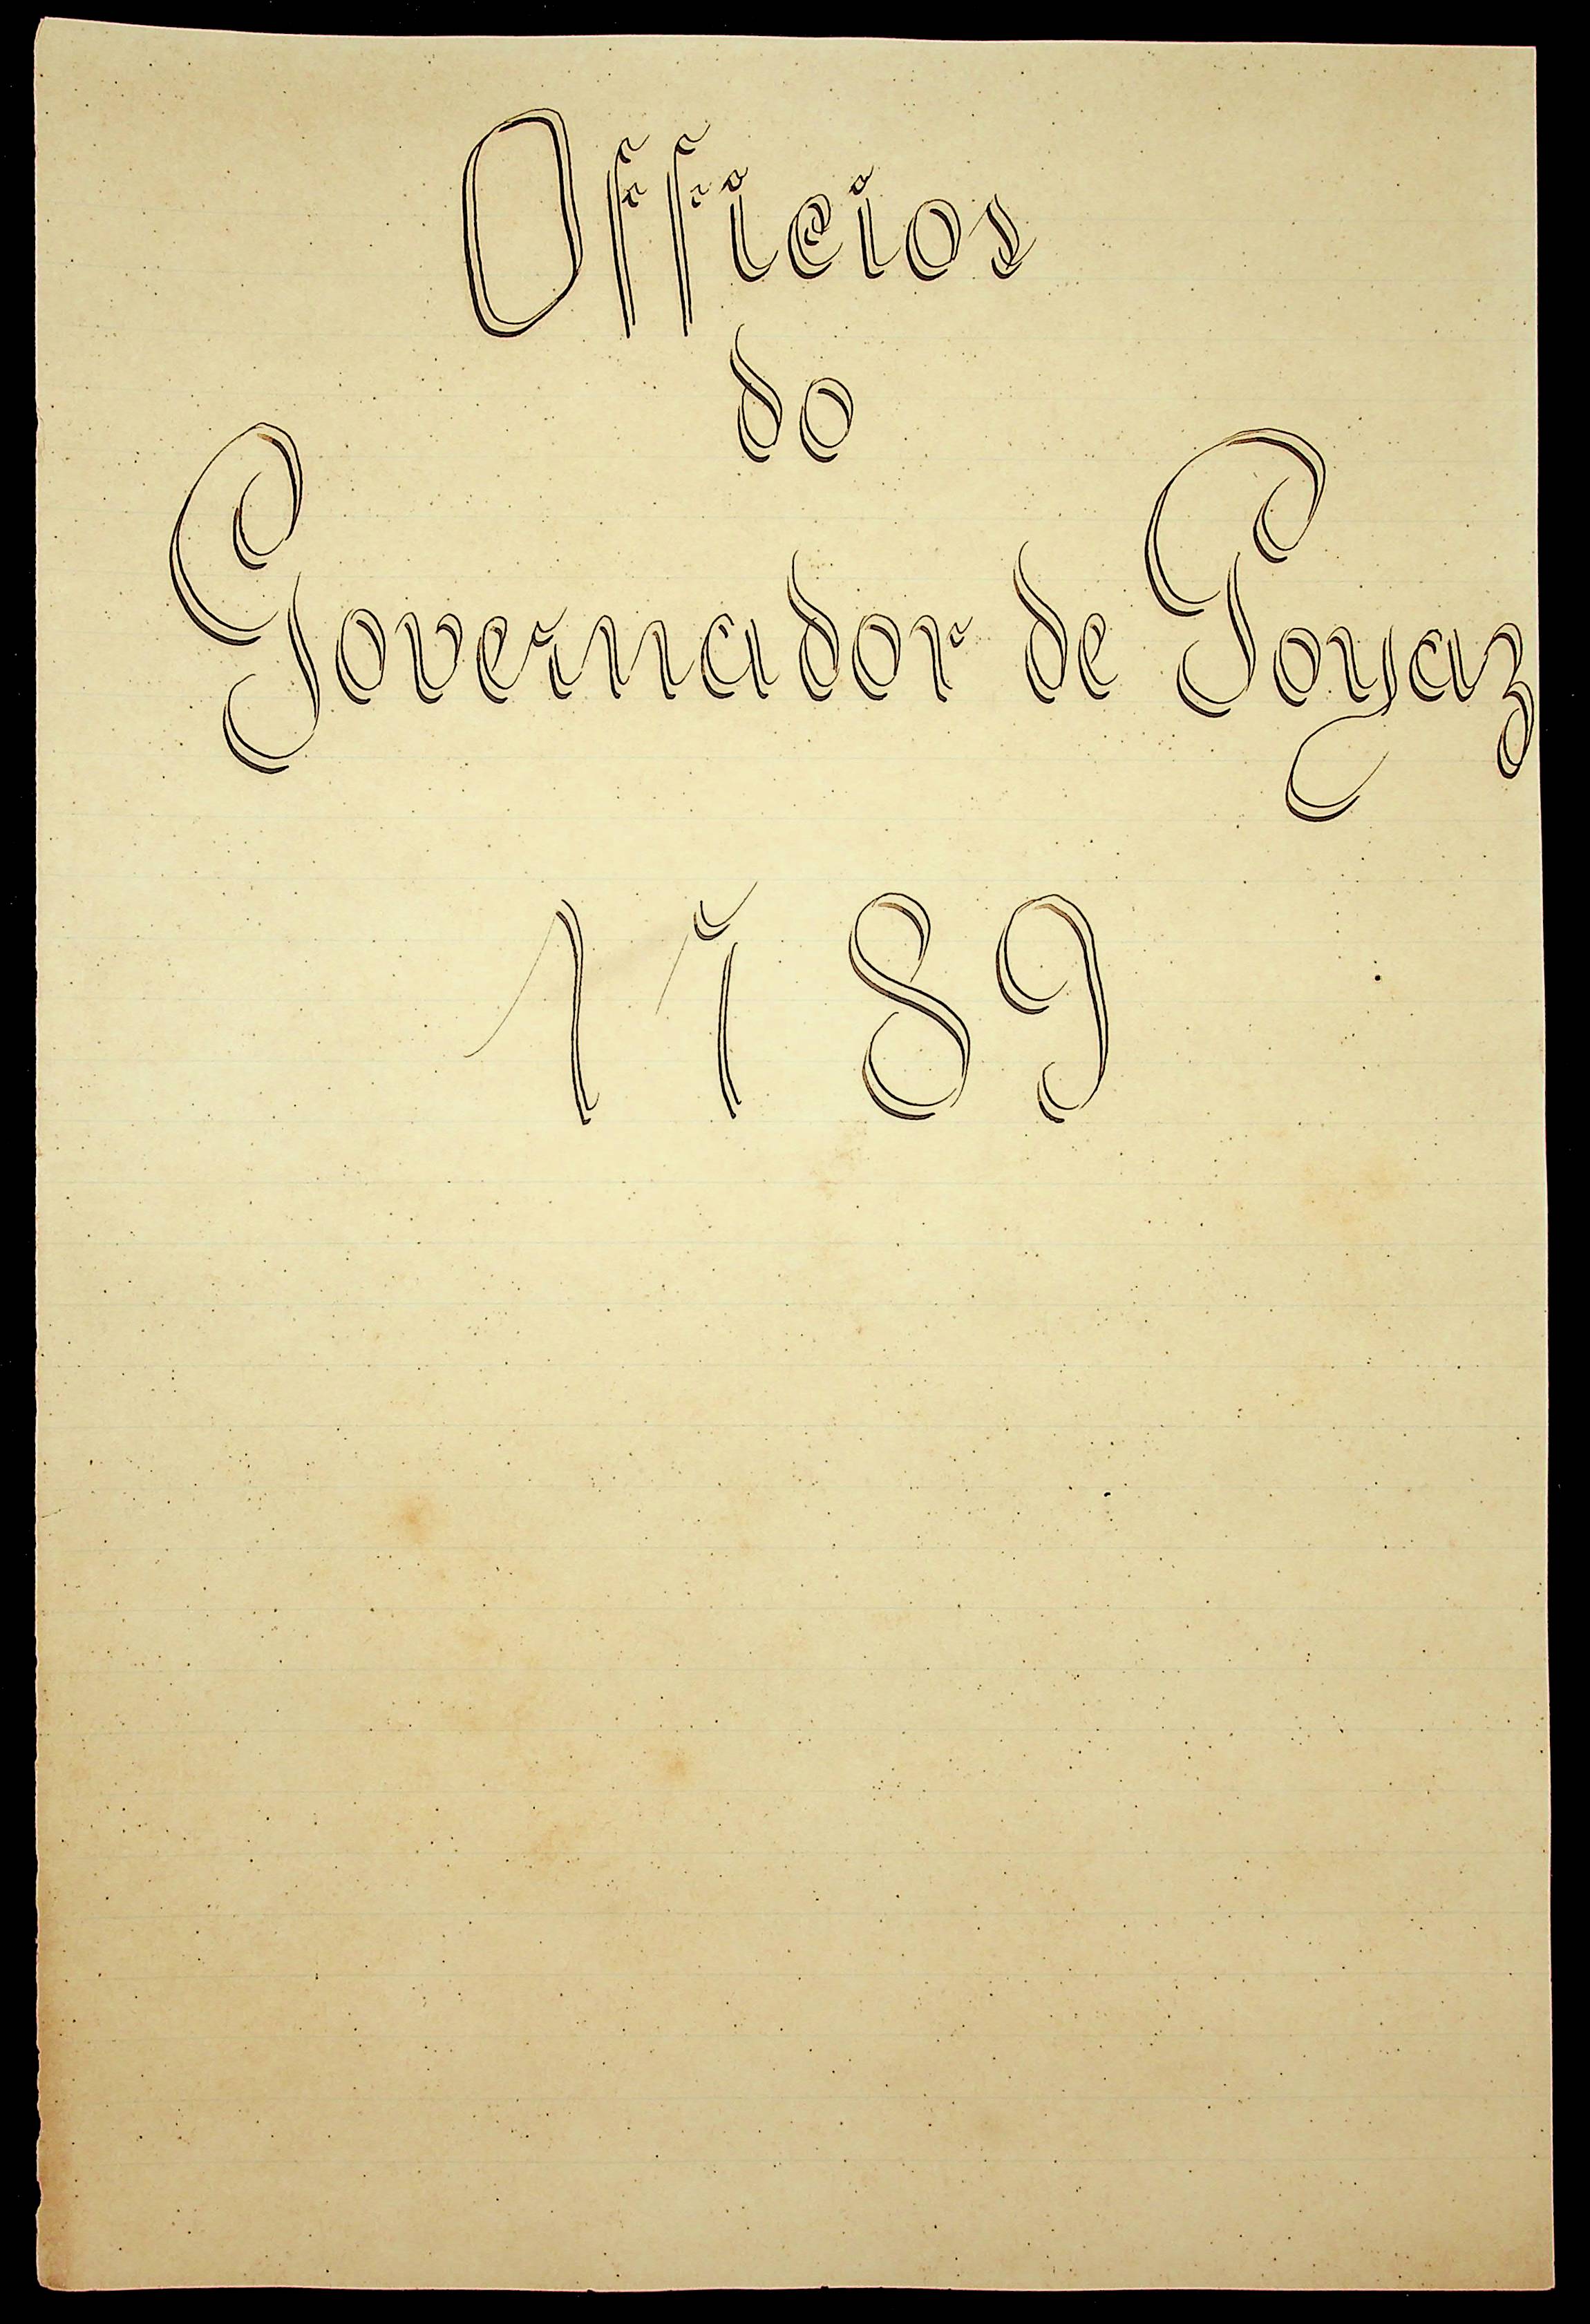 Officios
do
Governador de Goyaz
1789